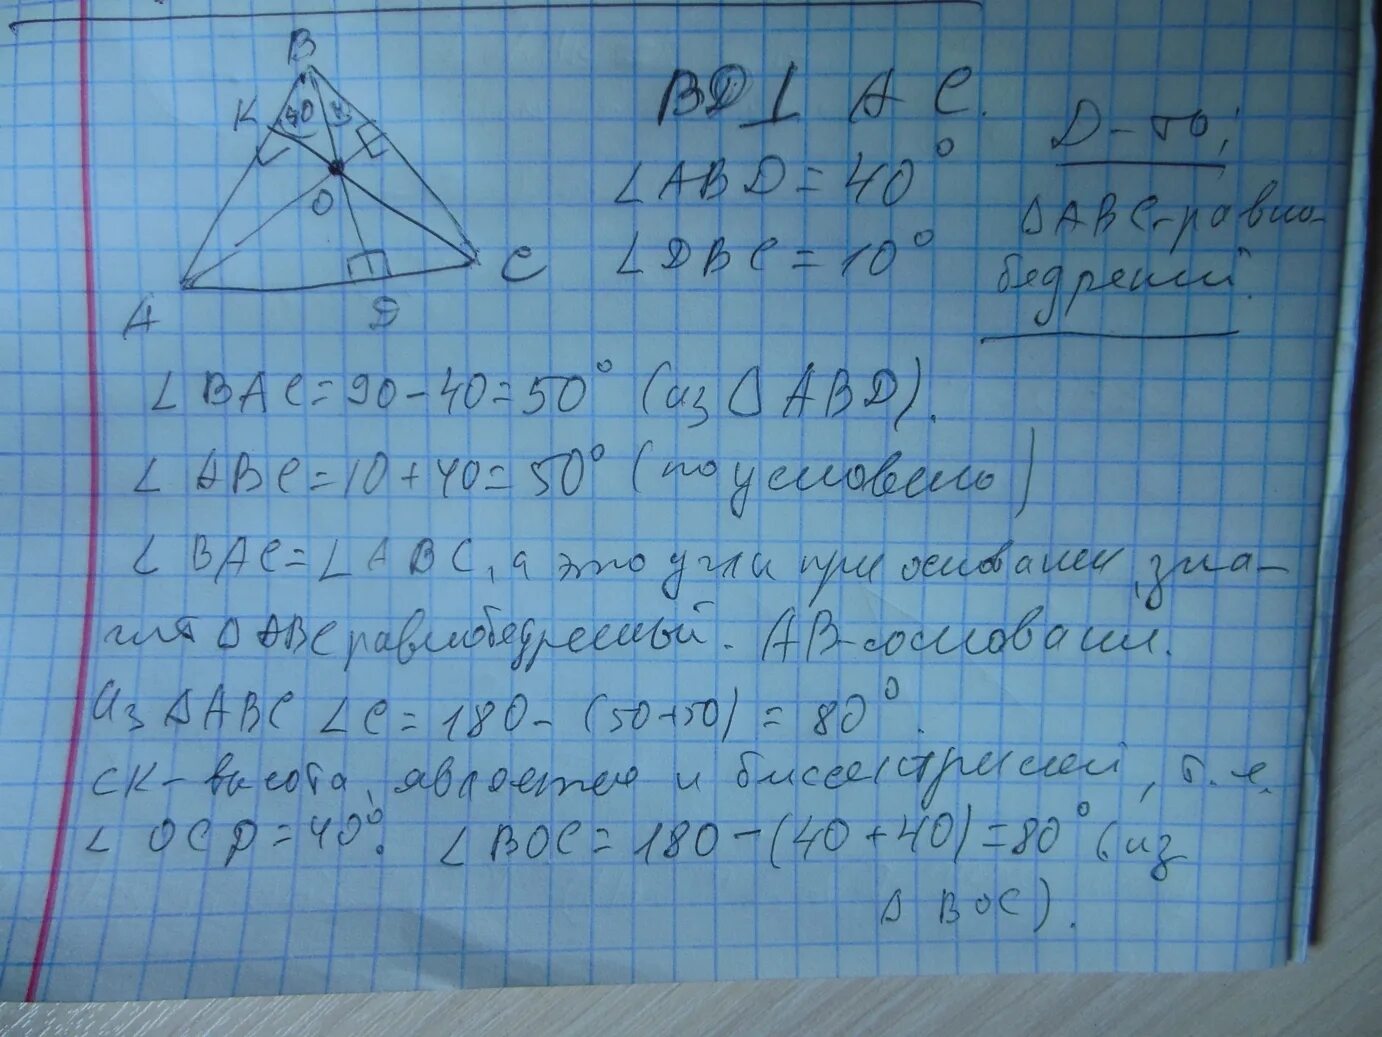 B
K 40
O
A D C
BD ⊥ AC.
∠ABD = 40°
∠DBC = 10°
Д-ть;
ΔABC-равно-
бедрений.
∠BAC = 90 - 40 = 50° (из ΔABD).
∠ABC = 10 + 40 = 50° (по условию)
∠BAC = ∠ABC, а это углы при основании, зна-
чит ΔABC равнобедренный. AB-основани.
Из ΔABC ∠C = 180 - (50+50) = 80°.
CK-высота, является и биссектрисей, т.е.
∠OCD = 40°. ∠BOC = 180 - (40+40) = 80° (из
ΔBOC).